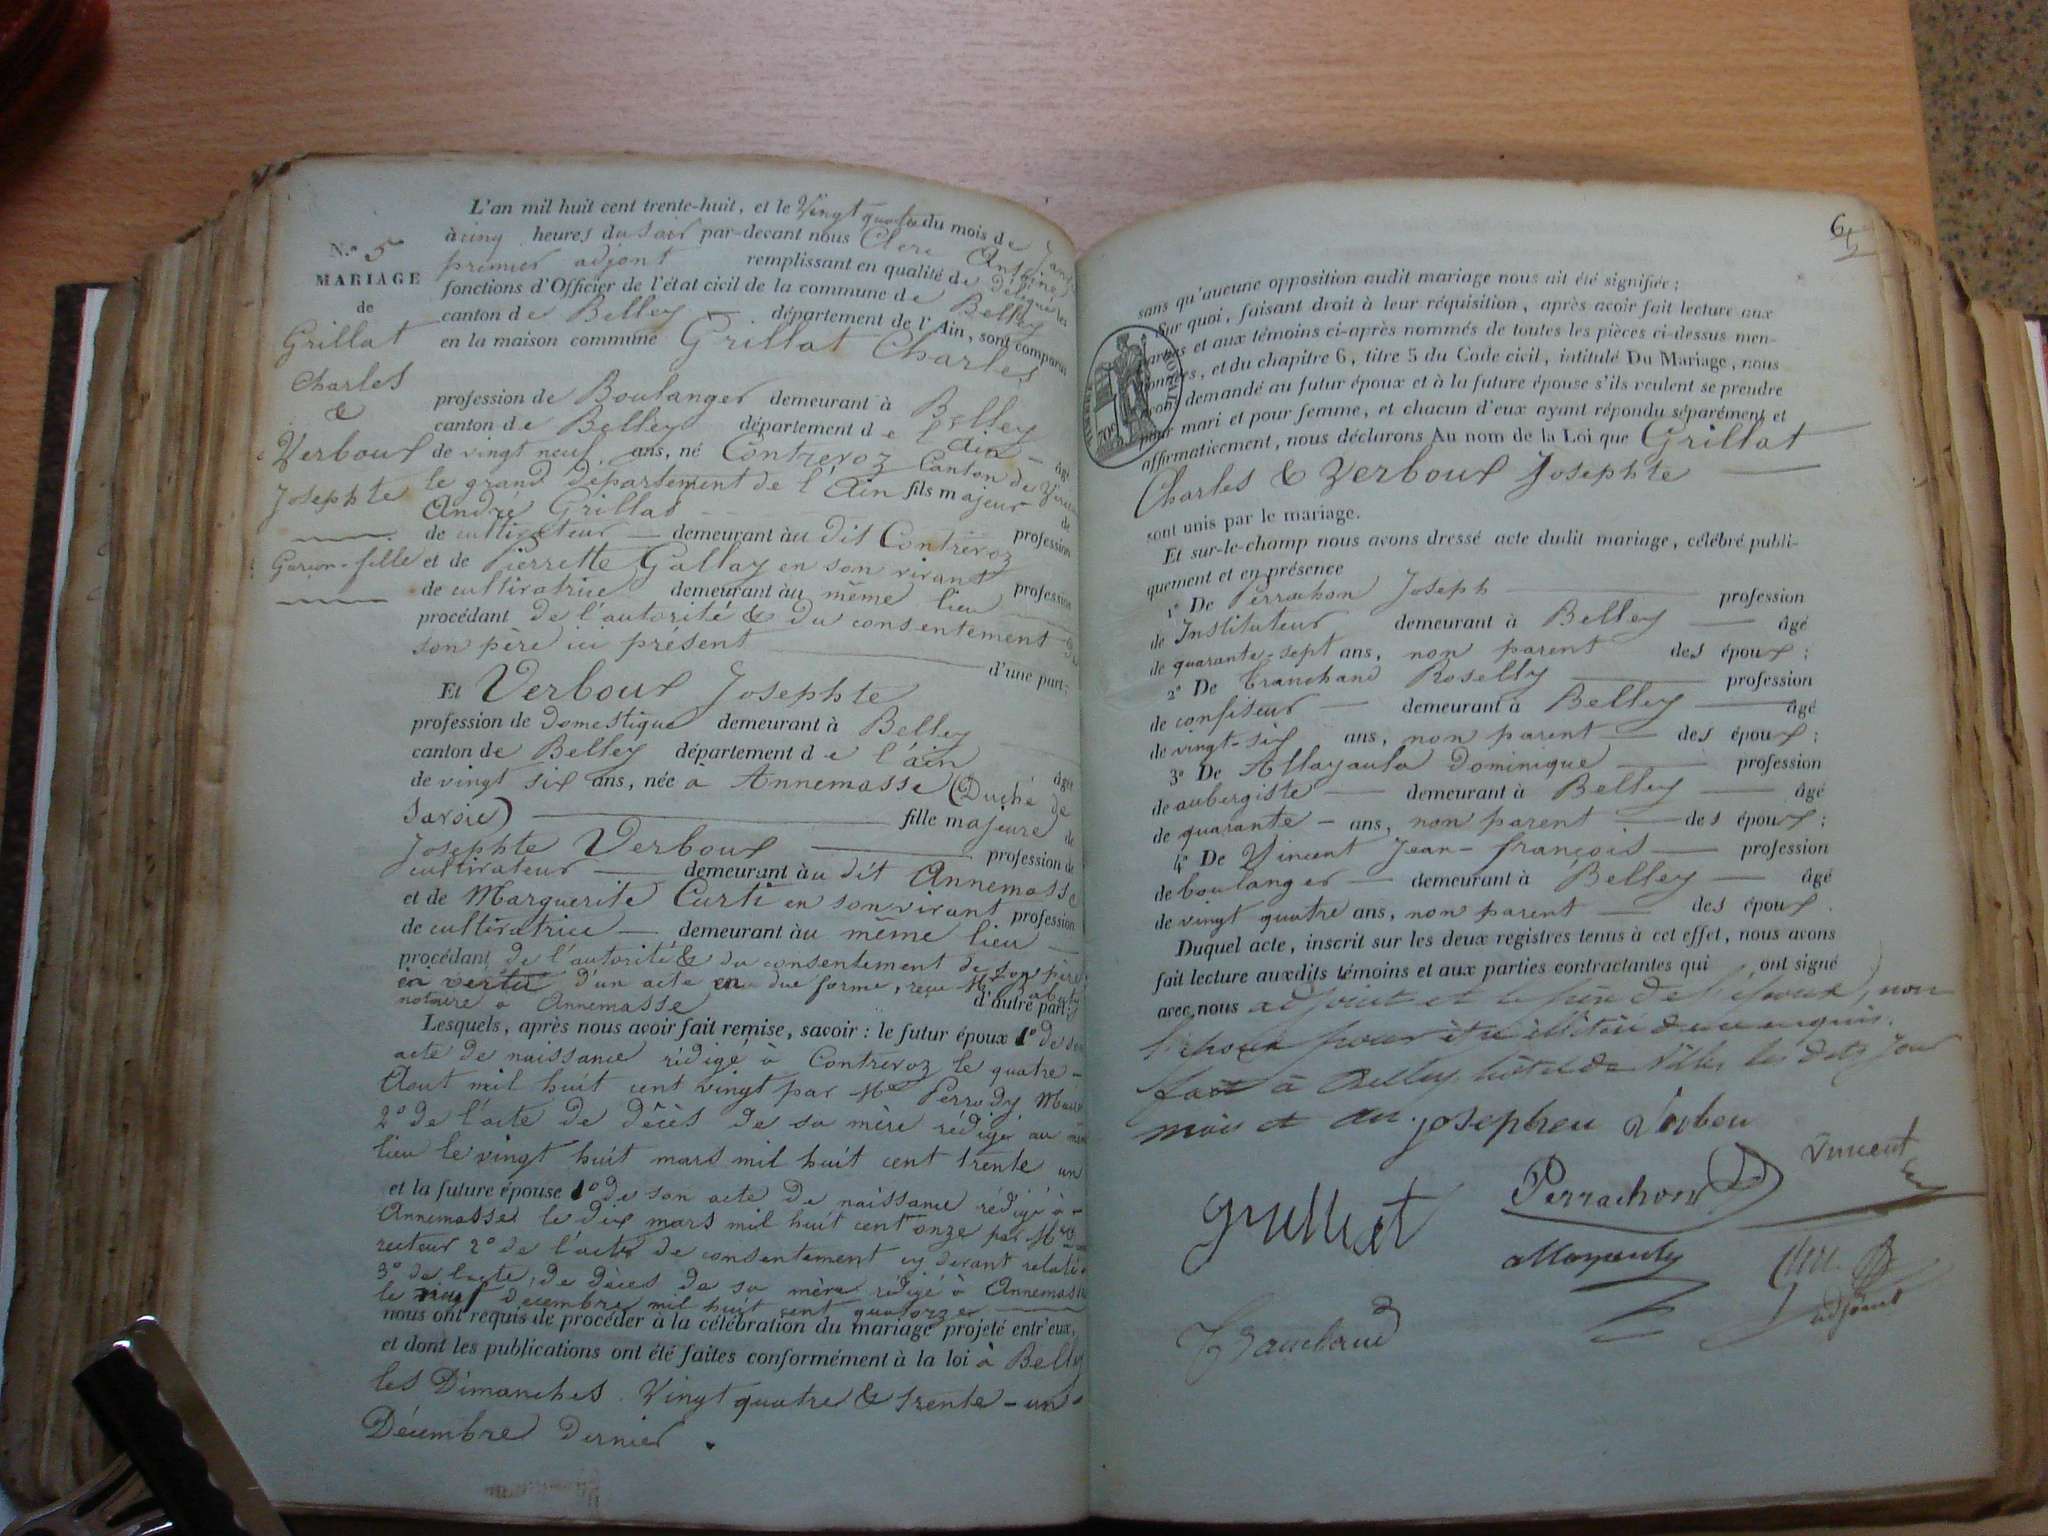 N.º 5
MARIAGE
de
Grillat
Charles
&
Verboux
Josephte
Garçon-fille
L'an mil huit cent trente-huit, et le Vingt quatre du mois de
à cinq heures du soir par-devant nous Clerc Antoine
premier adjoint remplissant en qualité de délégué les
fonctions d'Officier de l'état civil de la commune de Belley
canton de Belley département de l'Ain, sont comparus
en la maison commune Grillat Charles
profession de Boulanger demeurant à Belley
canton de Belley département de l'Ain âgé
de vingt neuf ans, né Contrevoz Canton de
le grand département de l'Ain fils majeur de
André Grillat profession
de cultivateur demeurant au dit Contrevoz
et de Pierrette Gallay en son vivant profession
de cultivatrice demeurant au même lieu
procédant de l'autorité & du consentement de
son père ici présent d'une part;
Et Verboux Josephte
profession de domestique demeurant à Belley
canton de Belley département de l'ain âgée
de vingt six ans, née à Annemasse (Duché de
Savoie) fille majeure de
Josephte Verboux profession de
cultivateur demeurant au dit Annemasse
et de Marguerite Curti en son vivant profession
de cultivatrice demeurant au même lieu
procédant de l'autorité & du consentement de son père
en vertu d'un acte en due forme, reçu Me
notaire à Annemasse d'autre part;
Lesquels, après nous avoir fait remise, savoir : le futur époux 1º de son
acte de naissance rédigé à Contrevoz le quatre
Aout mil huit cent vingt par Mr Perrody Maire
2º de l'acte de décès de sa mère rédigé au même
lieu le vingt huit mars mil huit cent trente un
et la future épouse 1º de son acte de naissance rédigé à
Annemasse le dix mars mil huit cent onze par Mr
recteur 2º de l'acte de consentement cy devant relaté
3º de l'acte de décès de sa mère rédigé à Annemasse
le décembre mil huit cent quatorze
nous ont requis de procéder à la célébration du mariage projeté entr'eux,
et dont les publications ont été faites conformément à la loi à Belley
les Dimanches Vingt quatre & trente-un
Décembre dernier.
6
sans qu'aucune opposition audit mariage nous ait été signifiée ;
Sur quoi, faisant droit à leur réquisition, après avoir fait lecture aux
parties et aux témoins ci-après nommés de toutes les pièces ci-dessus men-
tionnées, et du chapitre 6, titre 5 du Code civil, intitulé Du Mariage, nous
avons demandé au futur époux et à la future épouse s'ils veulent se prendre
pour mari et pour femme, et chacun d'eux ayant répondu séparément et
affirmativement, nous déclarons Au nom de la Loi que Grillat
Charles & Verboux Josephte
sont unis par le mariage.
Et sur-le-champ nous avons dressé acte dudit mariage, célébré publi-
quement et en présence
1º De Perrachon Joseph profession
de Instituteur demeurant à Belley âgé
de quarante-sept ans, non parent des époux ;
2º De Tranchand Roselly profession
de confiseur demeurant à Belley âgé
de vingt-six ans, non parent des époux ;
3º De Allayaula Dominique profession
de aubergiste demeurant à Belley âgé
de quarante ans, non parent des époux ;
4º De Vincent Jean-françois profession
de boulanger demeurant à Belley âgé
de vingt quatre ans, non parent des époux.
Duquel acte, inscrit sur les deux registres tenus à cet effet, nous avons
fait lecture auxdits témoins et aux parties contractantes qui ont signé
avec nous adjoint et le père de l'époux, non
l'époux pour être illitéré de ce enquis.
fait à Belley, hôtel de Ville, les dits jour
mois et an.
Verbou
Vincent
Grilliet
Perrachon
Clerc
adjoint